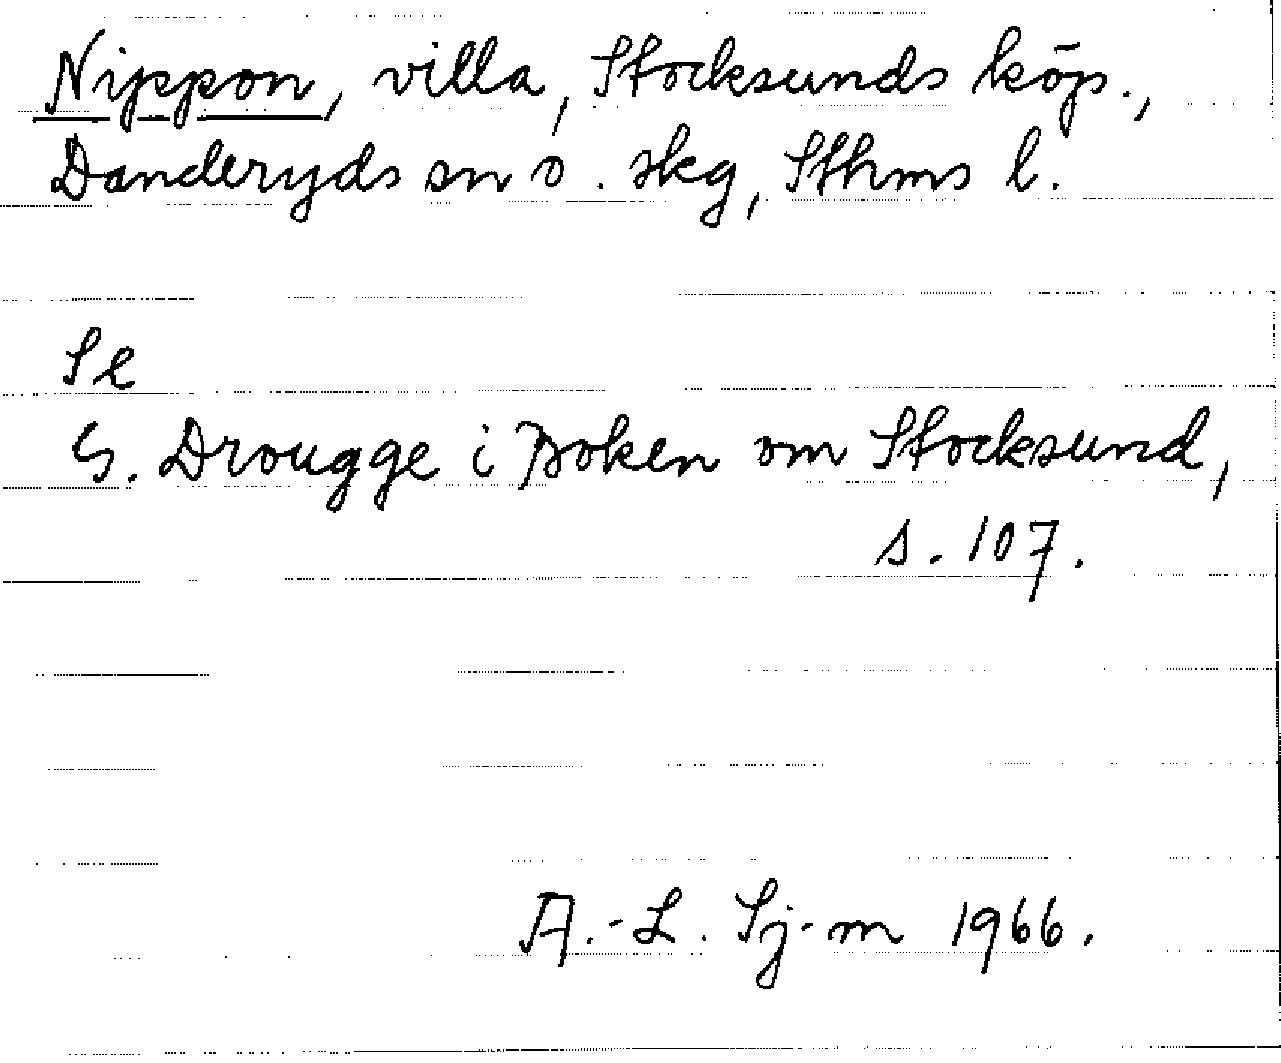 Nippon, villa, Stocksunds köp.,
Danderyds sn o. skg, Sthms l.
Se
G. Drougge i Boken om Stocksund,
s. 107.
A.-L. Sj-m 1966.